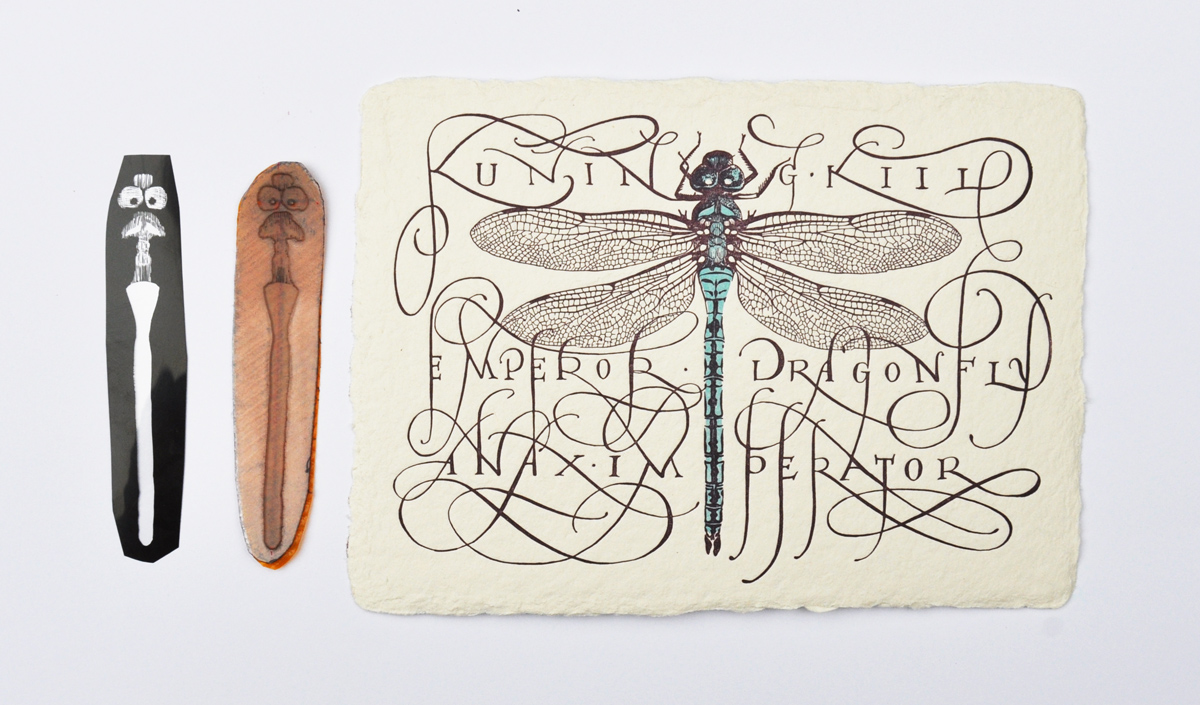 KUNINGKIIL
EMPEROR · DRAGONFLY
ANAX · IMPERATOR